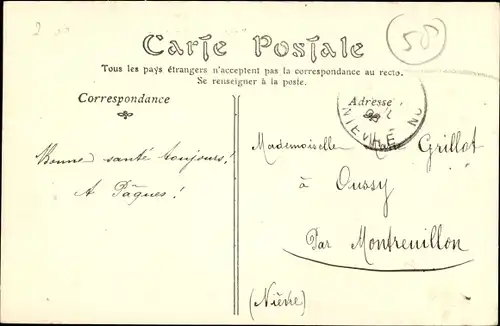 58
Carte Postale
Tous les pays étrangers n'acceptent pas la correspondance au recto.
Se renseigner à la poste.
Correspondance
Adresse
NIÈVRE
Bonne santé toujours!
A Pâques!
Mademoiselle Grillot
à
Oussy
Par Montreuillon
(Nièvre)